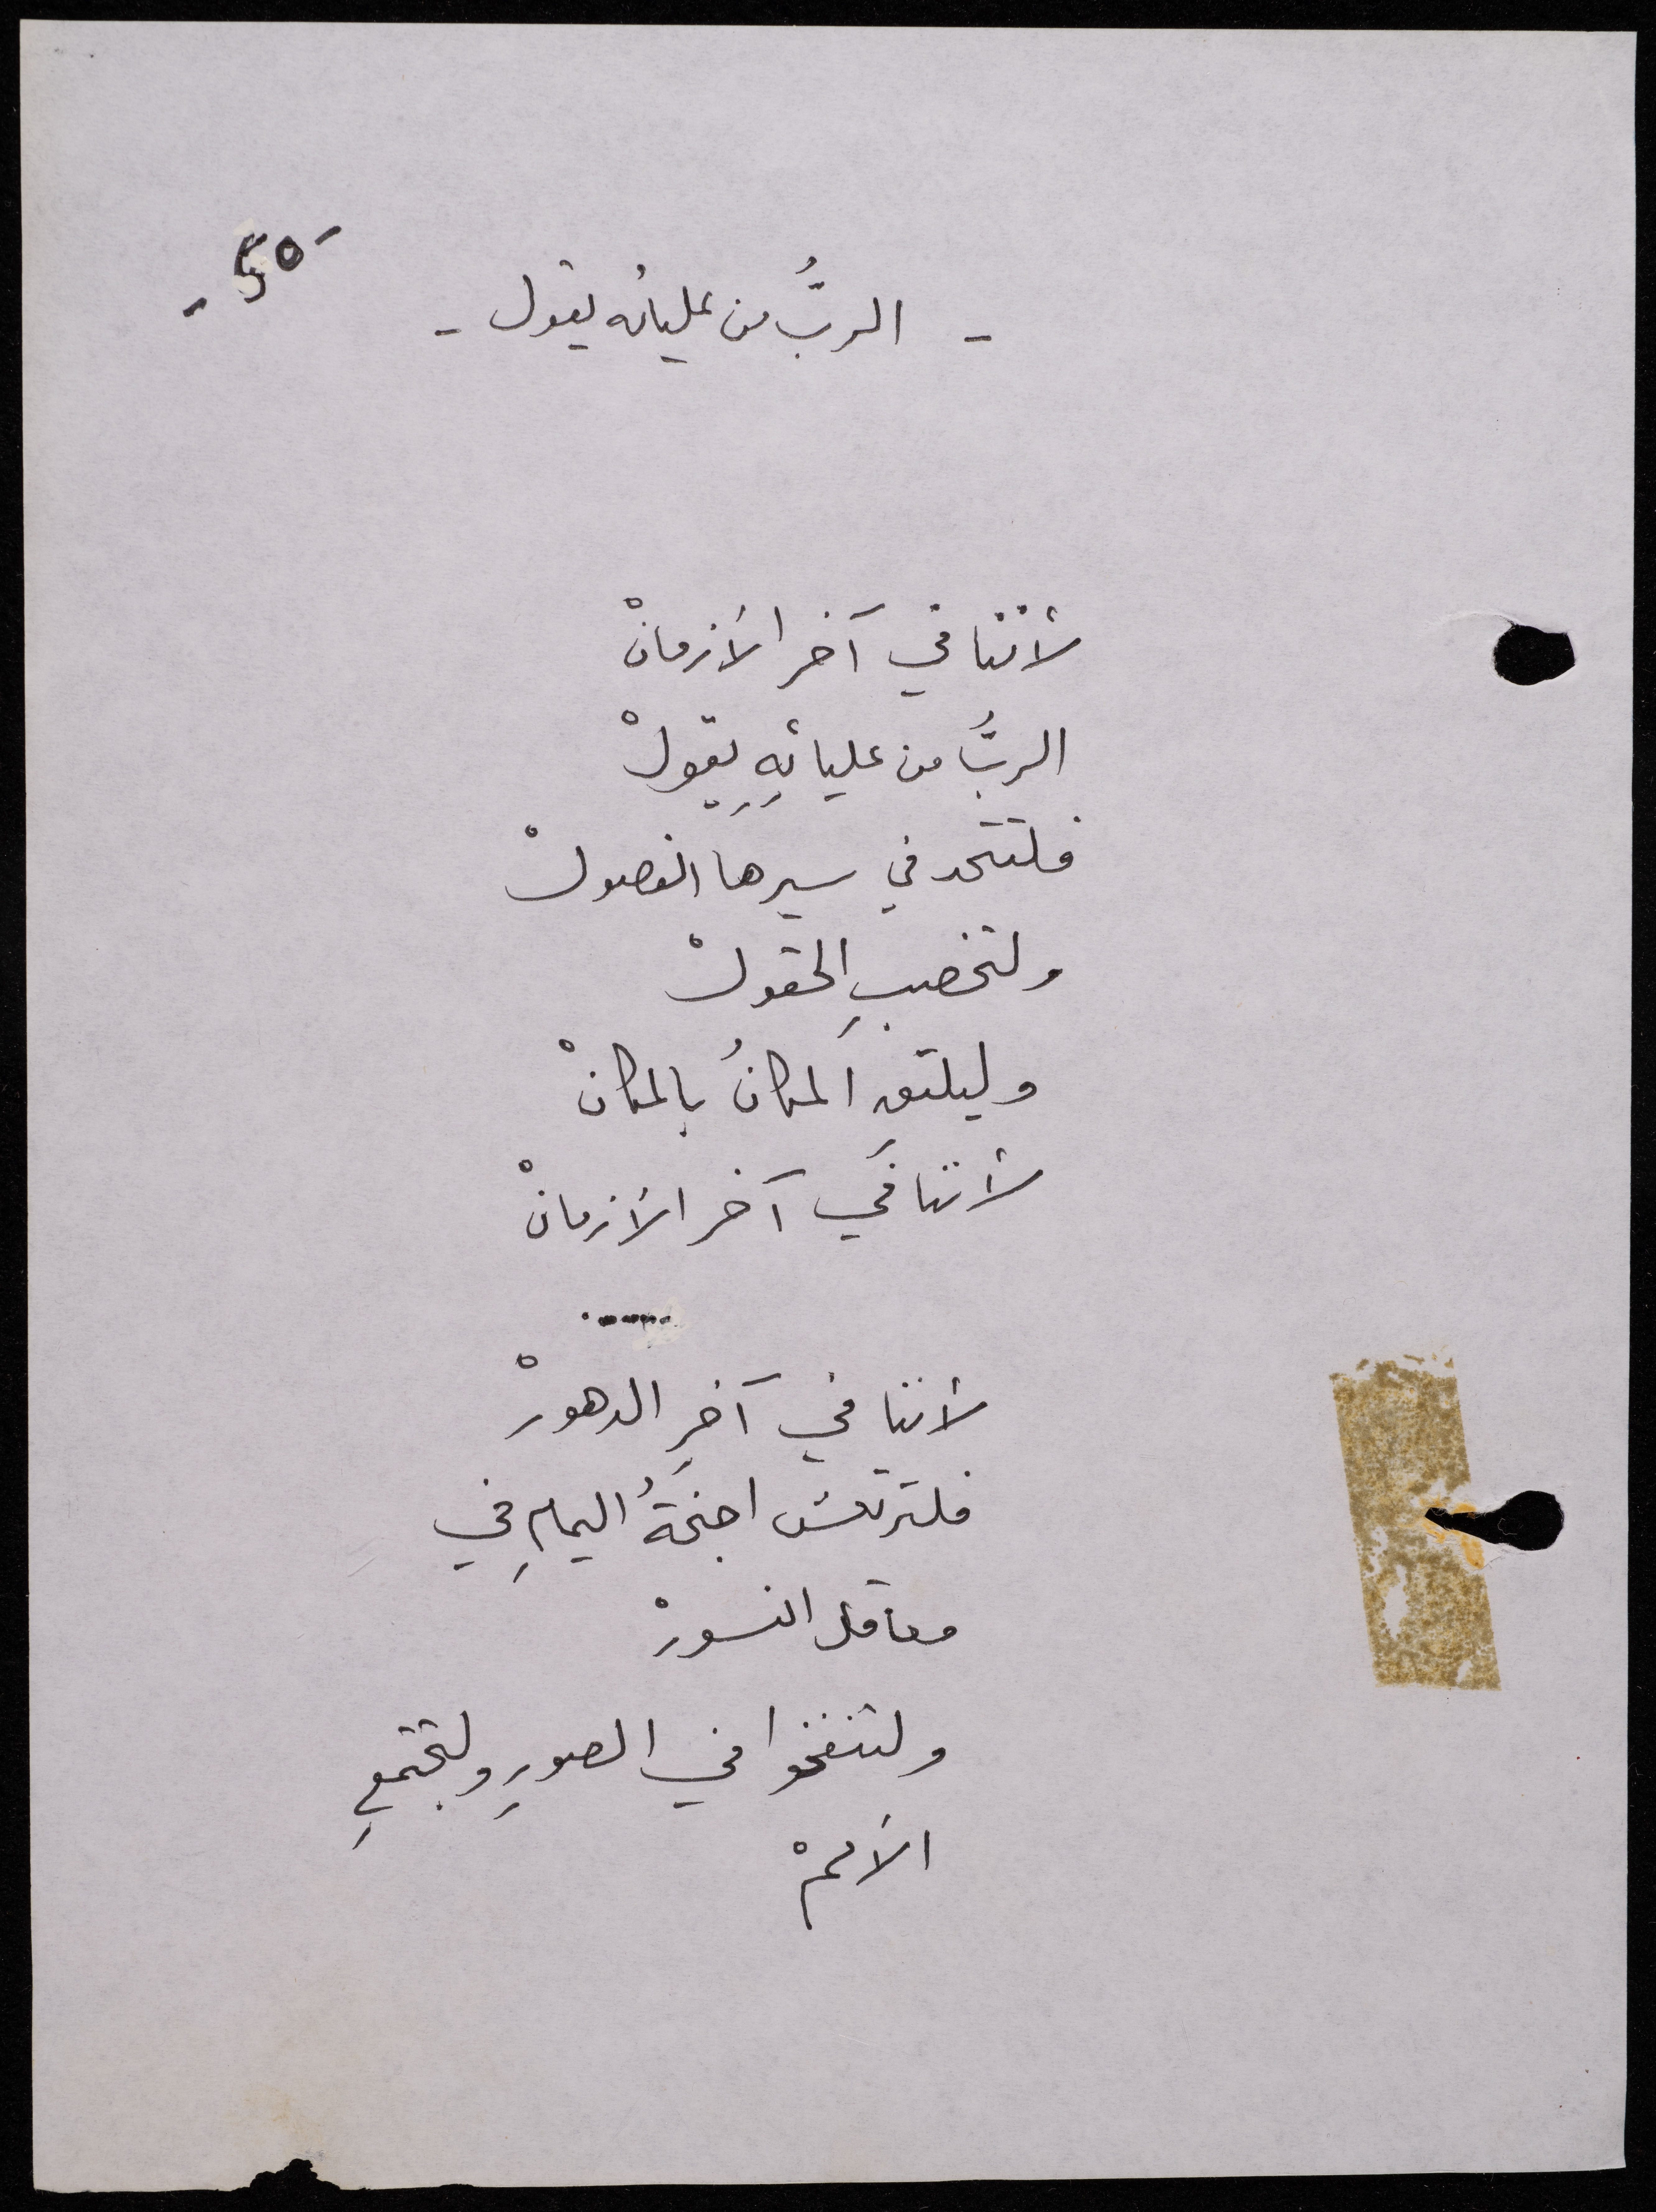 - 50 -
- الربُّ من عليائه يقول -
لأننا في آخر الأزمانْ
الربُّ من عليائهِ يقولْ
فلتتحد في سيرها الفصولْ
ولتخصبِ الحقولْ
وليلتقِ المكانُ بالمكانْ
لأننا في آخر الأزمانْ
......
لأننا في آخرِ الدهورْ
فلترتعش اجنحةُ اليمامِ في
معاقل النسورْ
ولتنفخوا في الصورِ ولتجتمعِ
الأممْ